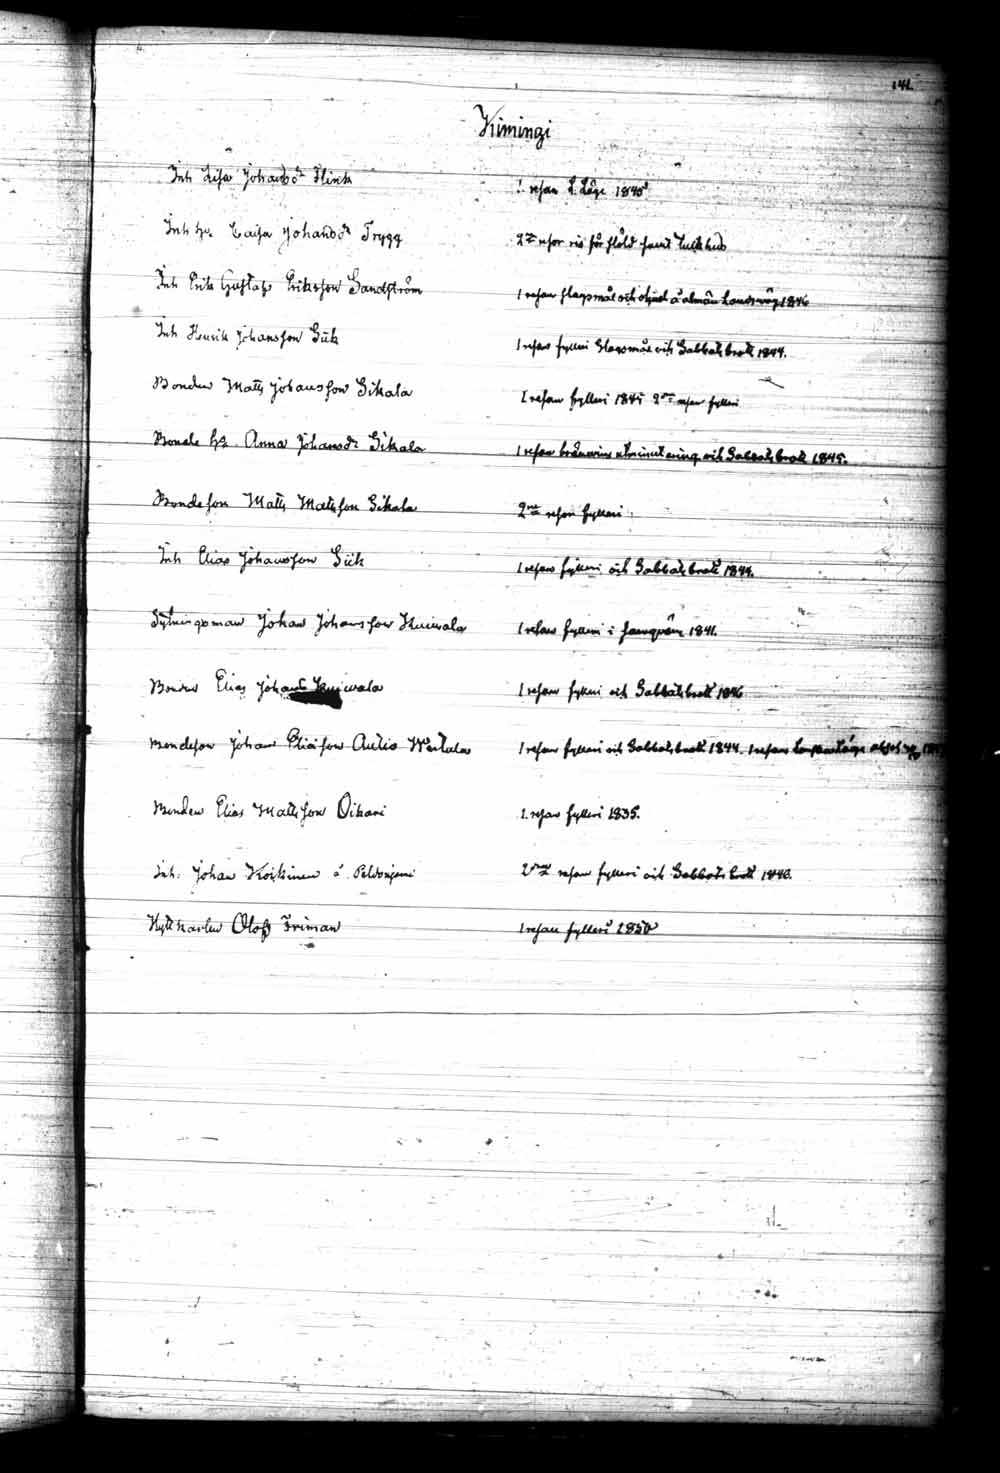 141.
Kimingi
Inh Lisa Johansdr Flink 1 resan L. Läge 1840
Inh ha Caisa Johansdr Trygg 2dra resor ris för stöld samt tukthus
Inh Erik Gustaf Eriksson Sandström 1 resan slagsmål och oljud å almän Landsväg 1846
Inh Henrik Johansson Siik 1 resan fylleri Slagsmål och Sabbatsbrott 1844.
Bonden Matts Johansson Sikala 1 resan fylleri 1845 2dra resan fylleri
Bonde ha Anna Johansdr Sikala 1 resan bränvins utminutering och Sabbatsbrott 1845.
Bondeson Matts Mattsson Sikala 2dra resan fylleri
Inh Elias Johansson Siik 1 resan fylleri och Sabbatsbrott 1844.
Sytningsman Johan Johansson Kuivala 1 resan fylleri i 1841.
Bonden Elias Johans Kuivala 1 resan fylleri och Sabbatsbrott 1846
Bondeson Johan Eliasson Autio 1 resan fylleri och Sabbatsbrott 1844. 1 resan
Bonden Elias Mattsson Oikari 1. resan fylleri 1835.
Inh. Johan Koikinen å 2dra resan fylleri och Sabbatsbrott 1846.
Olof Friman 1 resan fylleri 1850